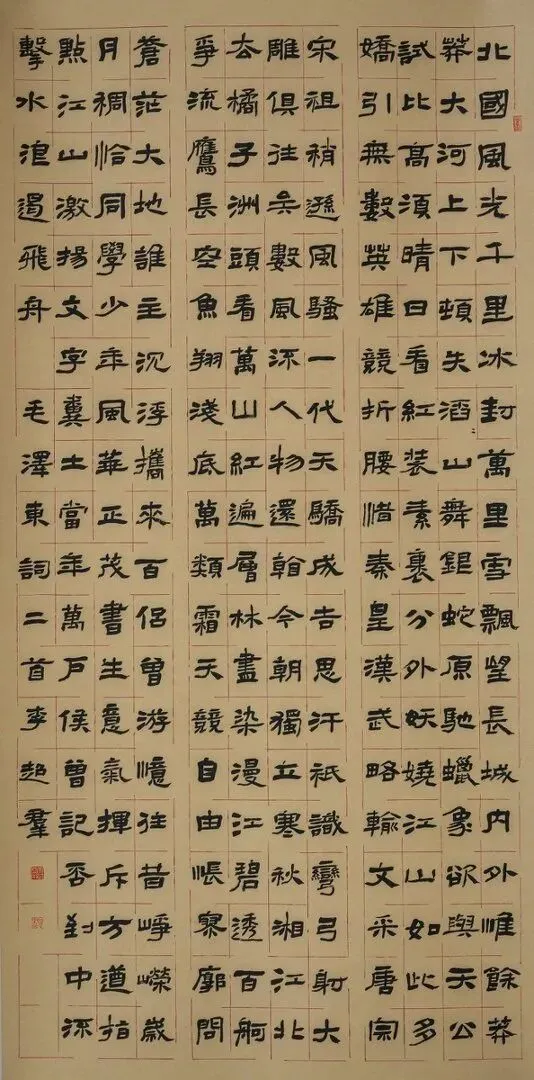 北國風光千里冰封萬里雪飄望長城内外惟餘莽
莽大河上下頓失滔〻山舞銀蛇原馳蠟象欲與天公
試比高須晴日看紅装素裹分外妖嬈江山如此多
嬌引無數英雄競折腰惜秦皇漢武略輸文采唐宗
宋祖稍遜風騷一代天驕成吉思汗衹識彎弓射大
雕俱往矣數風流人物還看今朝獨立寒秋湘江北
去橘子洲頭看萬山紅遍層林盡染漫江碧透百舸
爭流鷹長空魚翔淺底萬類霜天競自由悵寥廓問
蒼茫大地誰主沉浮攜來百侣曾游憶往昔崢嶸歲
月稠恰同學少年風華正茂書生意氣揮斥方遒指
點江山激揚文字糞土當年萬户侯曾記否到中流
擊水浪遏飛舟 毛澤東詞二首李超羣